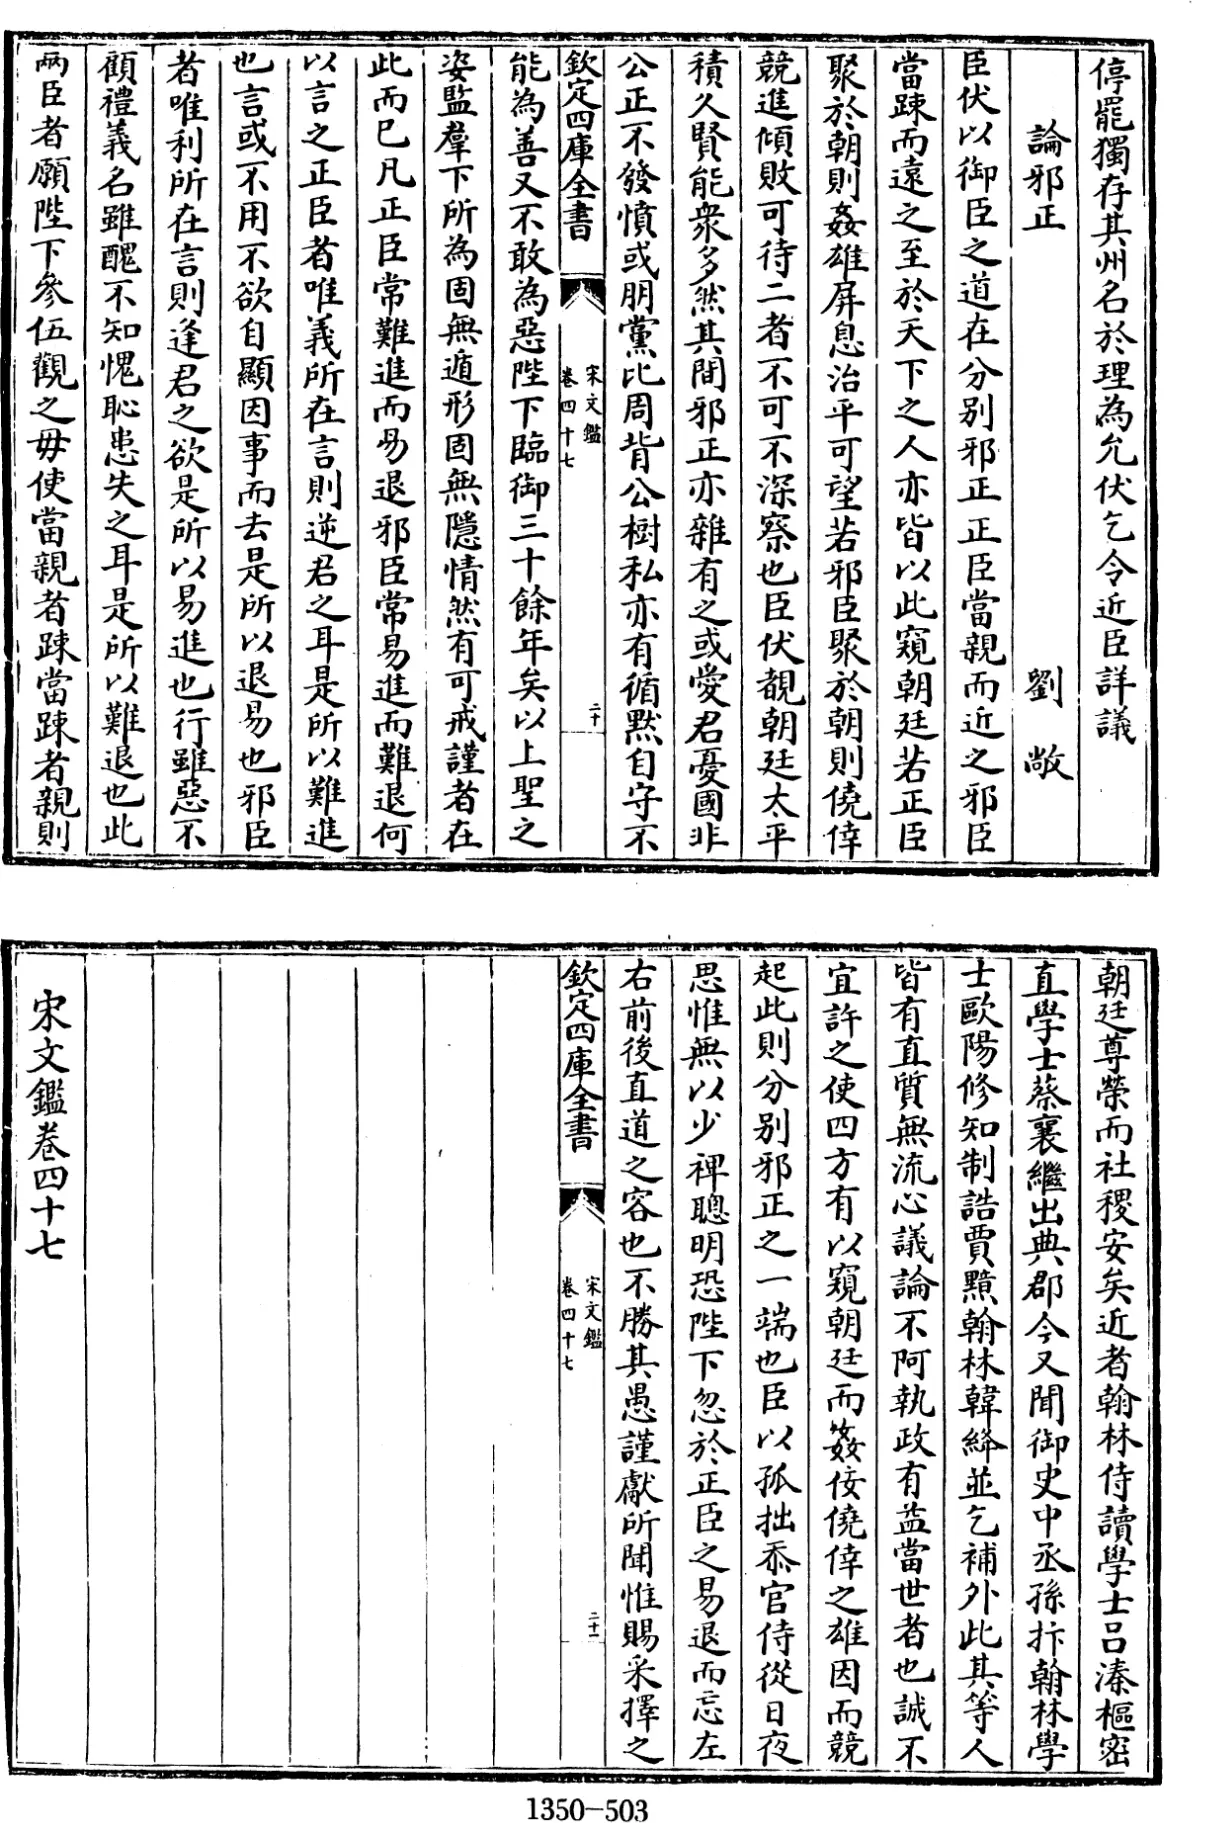 停罷獨存其州名於理為允伏乞令近臣詳議
論邪正　劉敞
臣伏以御臣之道在分别邪正正臣當親而近之邪臣
當踈而遠之至於天下之人亦皆以此窺朝廷若正臣
聚於朝則姦雄屏息治平可望若邪臣聚於朝則僥倖
競進傾敗可待二者不可不深察也臣伏覩朝廷太平
積久賢能衆多然其間邪正亦雜有之或愛君憂國非
公正不發憤或朋黨比周背公樹私亦有循黙自守不
欽定四庫全書
宋文鑑
卷四十七
二十
能為善又不敢為惡陛下臨御三十餘年矣以上聖之
姿監羣下所為固無遁形固無隱情然有可戒謹者在
此而已凡正臣常難進而易退邪臣常易進而難退何
以言之正臣者唯義所在言則逆君之耳是所以難進
也言或不用不欲自顯因事而去是所以退易也邪臣
者唯利所在言則逢君之欲是所以易進也行雖惡不
顧禮義名雖醜不知愧恥患失之耳是所以難退也此
兩臣者願陛下參伍觀之毋使當親者踈當踈者親則
朝廷尊榮而社稷安矣近者翰林侍讀學士吕溱樞密
直學士蔡襄繼出典郡今又聞御史中丞孫抃翰林學
士歐陽修知制誥賈黯翰林韓絳並乞補外此其等人
皆有直質無流心議論不阿執政有益當世者也誠不
宜許之使四方有以窺朝廷而姦佞僥倖之雄因而競
起此則分别邪正之一端也臣以孤拙忝官侍從日夜
思惟無以少裨聰明恐陛下忽於正臣之易退而忘左
右前後直道之容也不勝其愚謹獻所聞惟賜采擇之
欽定四庫全書
宋文鑑
卷四十七
二十一
宋文鑑卷四十七
1350-503